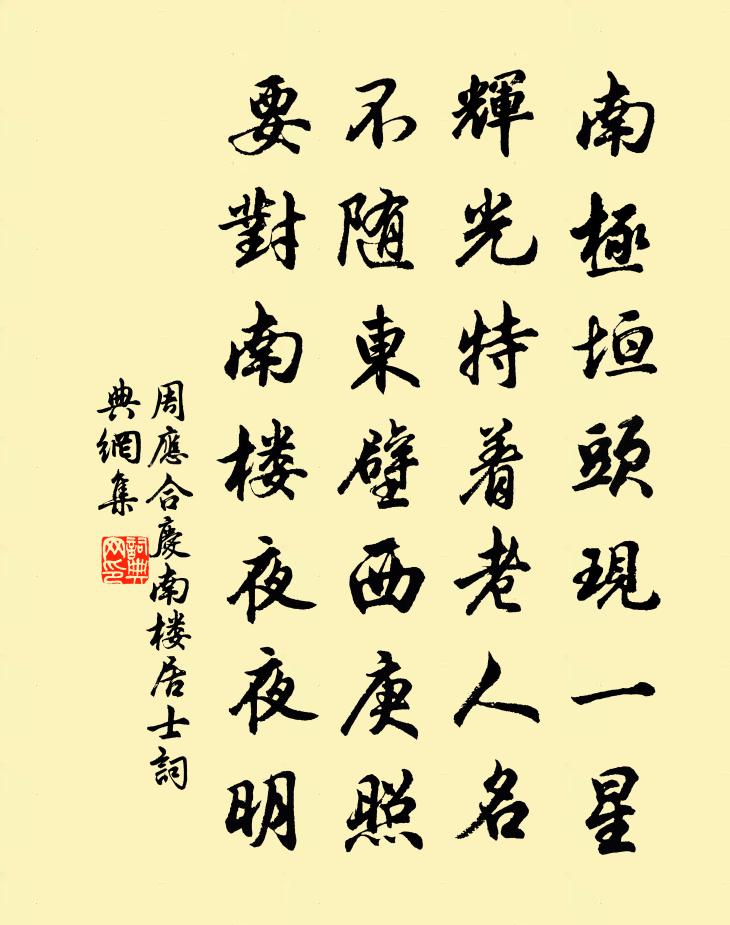 南極垣頭現一星
輝光特着老人名
不随東壁西庚照
要對南楼夜夜明
周應合慶南楼居士詞
典網集
詞典網印